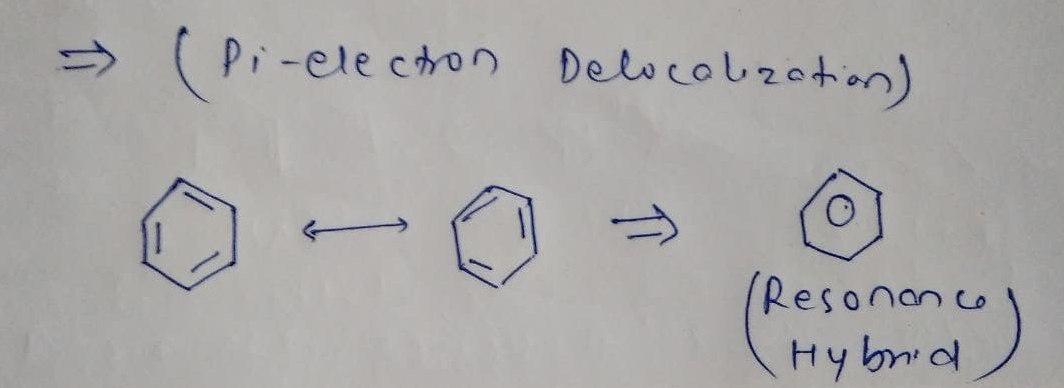 ⇒ (Pi-electron Delocalization)
(Resonance
Hybrid)